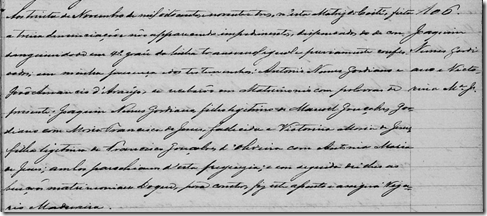 Aos trinta de Novembro de mil oitocentos noventa e tres, n'esta Matriz de Cristo, feitas
as tres denunciações não apparecendo impedimento, dispensados de con
sanguinidade em 2º grau de linha transversal igual e previamente confes
sados, em minha presença e das testemunhas: Antonio Nunes Gordiano e
José Januario d'Araujo, se receberão em Matrimonio com palavras de
presente Joaquim Nunes Gordiano filho legitimo de Manoel Gonçalves Gor
diano com Maria Francisca de Jesus, fallecida e Victorina Maria de Jesus
filha legitima de Francisco Gonçalves d'Oliveira com Antonia Maria
de Jesus; ambos parochianos d'esta freguezia; e em seguida dei-lhes as
bençãos matrimoniaes. E para constar, fiz este apontº e assignei. Viga
rio Madureira.
106
Joaquim
Nunes Gordi
ano e Victo
rina Mª de J.